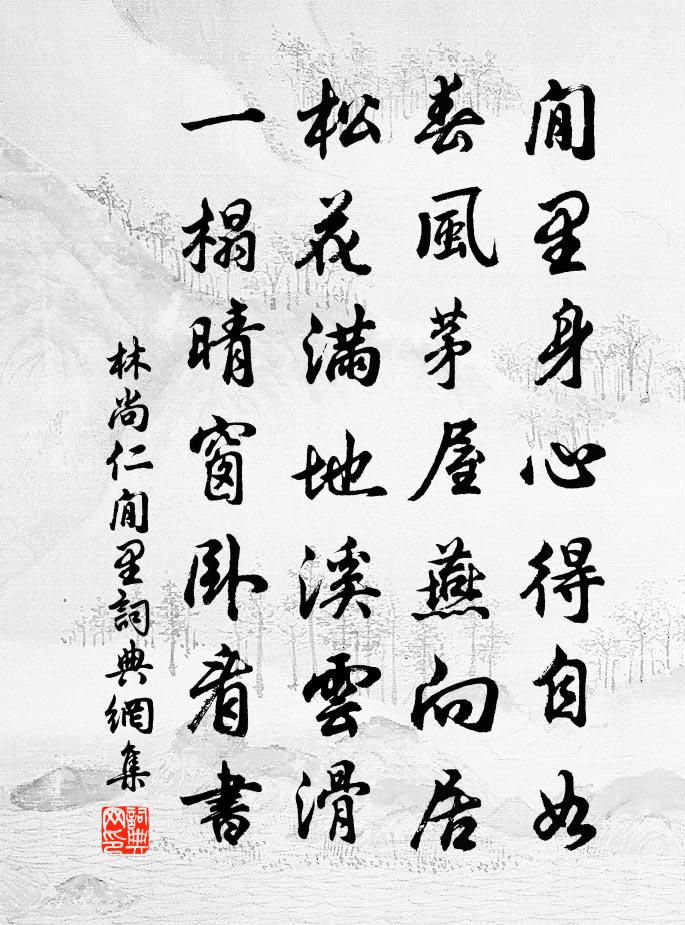 閒里身心得自如
春風茅屋燕向居
松花滿地溪雲滑
一榻晴窗臥看書
林尚仁閒里詞典網集
詞典網印